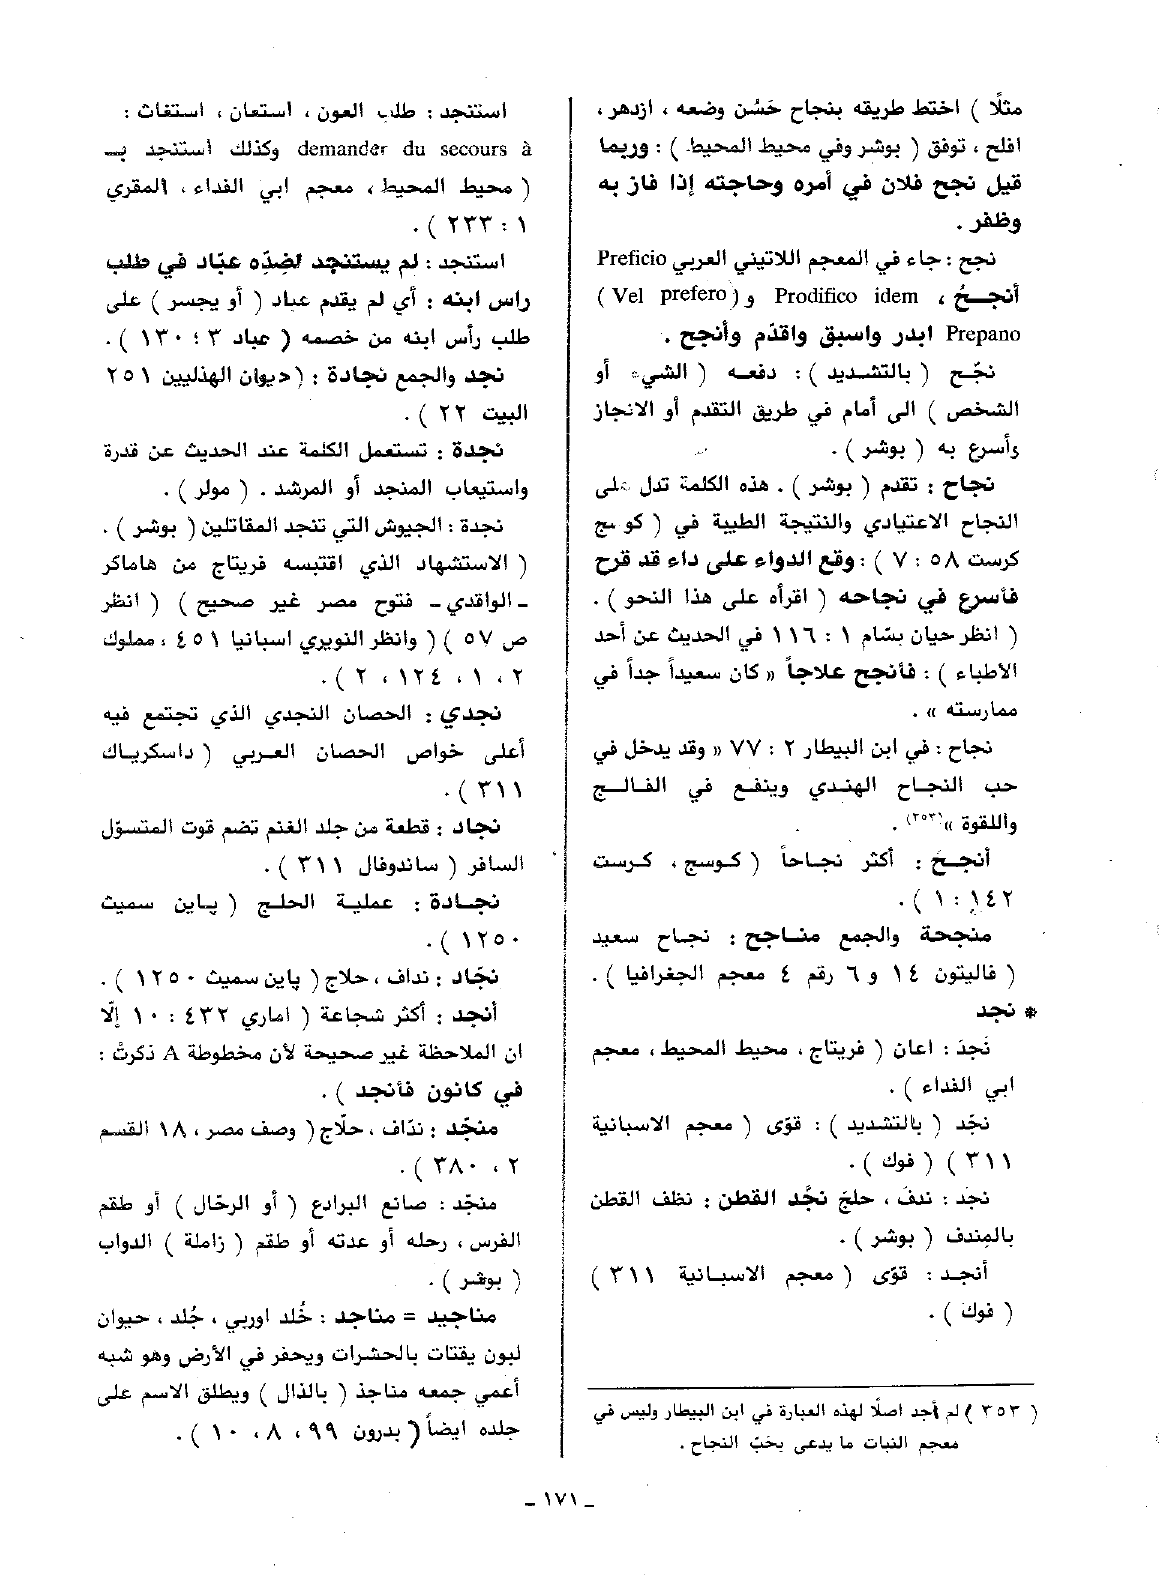 مثلًا ) اختط طريقه بنجاح حَسُن وضعه ، ازدهر ،
افلح ، توفق ( بوشر وفي محيط المحيط ) : وربما
قيل نجح فلان في أمره وحاجته إذا فاز به
وظفر .
نجح : جاء في المعجم اللاتيني العربي Preficio
أنجـحُ ، Prodifico idem و ( Vel prefero )
Prepano ابدر واسبق واقدّم وأنجح .
نجّح ( بالتشديد ) : دفعه ( الشيء أو
الشخص ) الى أمام في طريق التقدم أو الانجاز
وأسرع به ( بوشر ) .
نجاح : تقدم ( بوشر ) . هذه الكلمة تدل على
النجاح الاعتيادي والنتيجة الطيبة في ( كوسج
كرست ٥٨ : ٧ ) : وقع الدواء على داء قد قرح
فأسرع في نجاحه ( اقرأه على هذا النحو ) .
( انظر حيان بسّام ١ : ١١٦ في الحديث عن أحد
الأطباء ) : فأنجح علاجاً « كان سعيداً جداً في
ممارسته » .
نجاح : في ابن البيطار ٢ : ٧٧ « وقد يدخل في
حب النجاح الهندي وينفع في الفالج
واللقوة »(٣٥٣) .
أنجح : أكثر نجاحاً ( كوسج ، كرست
١٤٢ : ١ ) .
منجحة والجمع مناجح : نجاح سعيد
( فاليتون ١٤ و ٦ رقم ٤ معجم الجغرافيا ) .
* نجد
نَجدَ : اعان ( فريتاج ، محيط المحيط ، معجم
ابي الفداء ) .
نجّد ( بالتشديد ) : قوّى ( معجم الاسبانية
٣١١ ) ( فوك ) .
نجّد : ندفَ ، حلجَ نجَّد القطن : نظف القطن
بالمِندف ( بوشر ) .
أنجد : قوّى ( معجم الاسبانية ٣١١ )
( فوك ) .
( ٣٥٣ ) لم أجد اصلًا لهذه العبارة في ابن البيطار وليس في
معجم النبات ما يدعى بحَبّ النجاح .
استنجد : طلب العون ، استعان ، استغاث :
demander du secours à وكذلك استنجد بـ
( محيط المحيط ، معجم ابي الفداء ، المقري
١ : ٢٣٣ ) .
استنجد : لم يستنجد لضدّه عبّاد في طلب
راس ابنه : أي لم يقدم عباد ( أو يجسر ) على
طلب رأس ابنه من خصمه ( عباد ٣ ؛ ١٣٠ ) .
نجد والجمع نجادة : ( ديوان الهذليين ٢٥١
البيت ٢٢ ) .
نجدة : تستعمل الكلمة عند الحديث عن قدرة
واستيعاب المنجد أو المرشد . ( مولر ) .
نجدة : الجيوش التي تنجد المقاتلين ( بوشر ) .
( الاستشهاد الذي اقتبسه فريتاج من هاماكر
ـ الواقدي ـ فتوح مصر غير صحيح ) ( انظر
ص ٥٧ ) ( وانظر النويري اسبانيا ٤٥١ ، مملوك
٢ ، ١ ، ١٢٤ ، ٢ ) .
نجدي : الحصان النجدي الذي تجتمع فيه
أعلى خواص الحصان العربي ( داسكرياك
٣١١ ) .
نجاد : قطعة من جلد الغنم تضم قوت المتسوّل
السافر ( ساندوفال ٣١١ ) .
نجادة : عملية الحلج ( پاين سميث
١٢٥٠ ) .
نجّاد : نداف ، حلاج ( پاين سميث ١٢٥٠ ) .
أنجد : أكثر شجاعة ( اماري ٤٣٢ : ١٠ إلّا
ان الملاحظة غير صحيحة لأن مخطوطة A ذكرتْ :
في كانون فأنجد ) .
منجّد : ندّاف ، حلّاج ( وصف مصر ، ١٨ القسم
٢ ، ٣٨٠ ) .
منجّد : صانع البرادع ( أو الرحّال ) أو طقم
الفرس ، رحله أو عدته أو طقم ( زاملة ) الدواب
( بوشر ) .
مناجيد = مناجد : خُلد اوربي ، جُلد ، حيوان
لبون يقتات بالحشرات ويحفر في الأرض وهو شبه
أعمي جمعه مناجذ ( بالذال ) ويطلق الاسم على
جلده ايضاً ( بدرون ٩٩ ، ٨ ، ١٠ ) .
ـ ١٧١ ـ